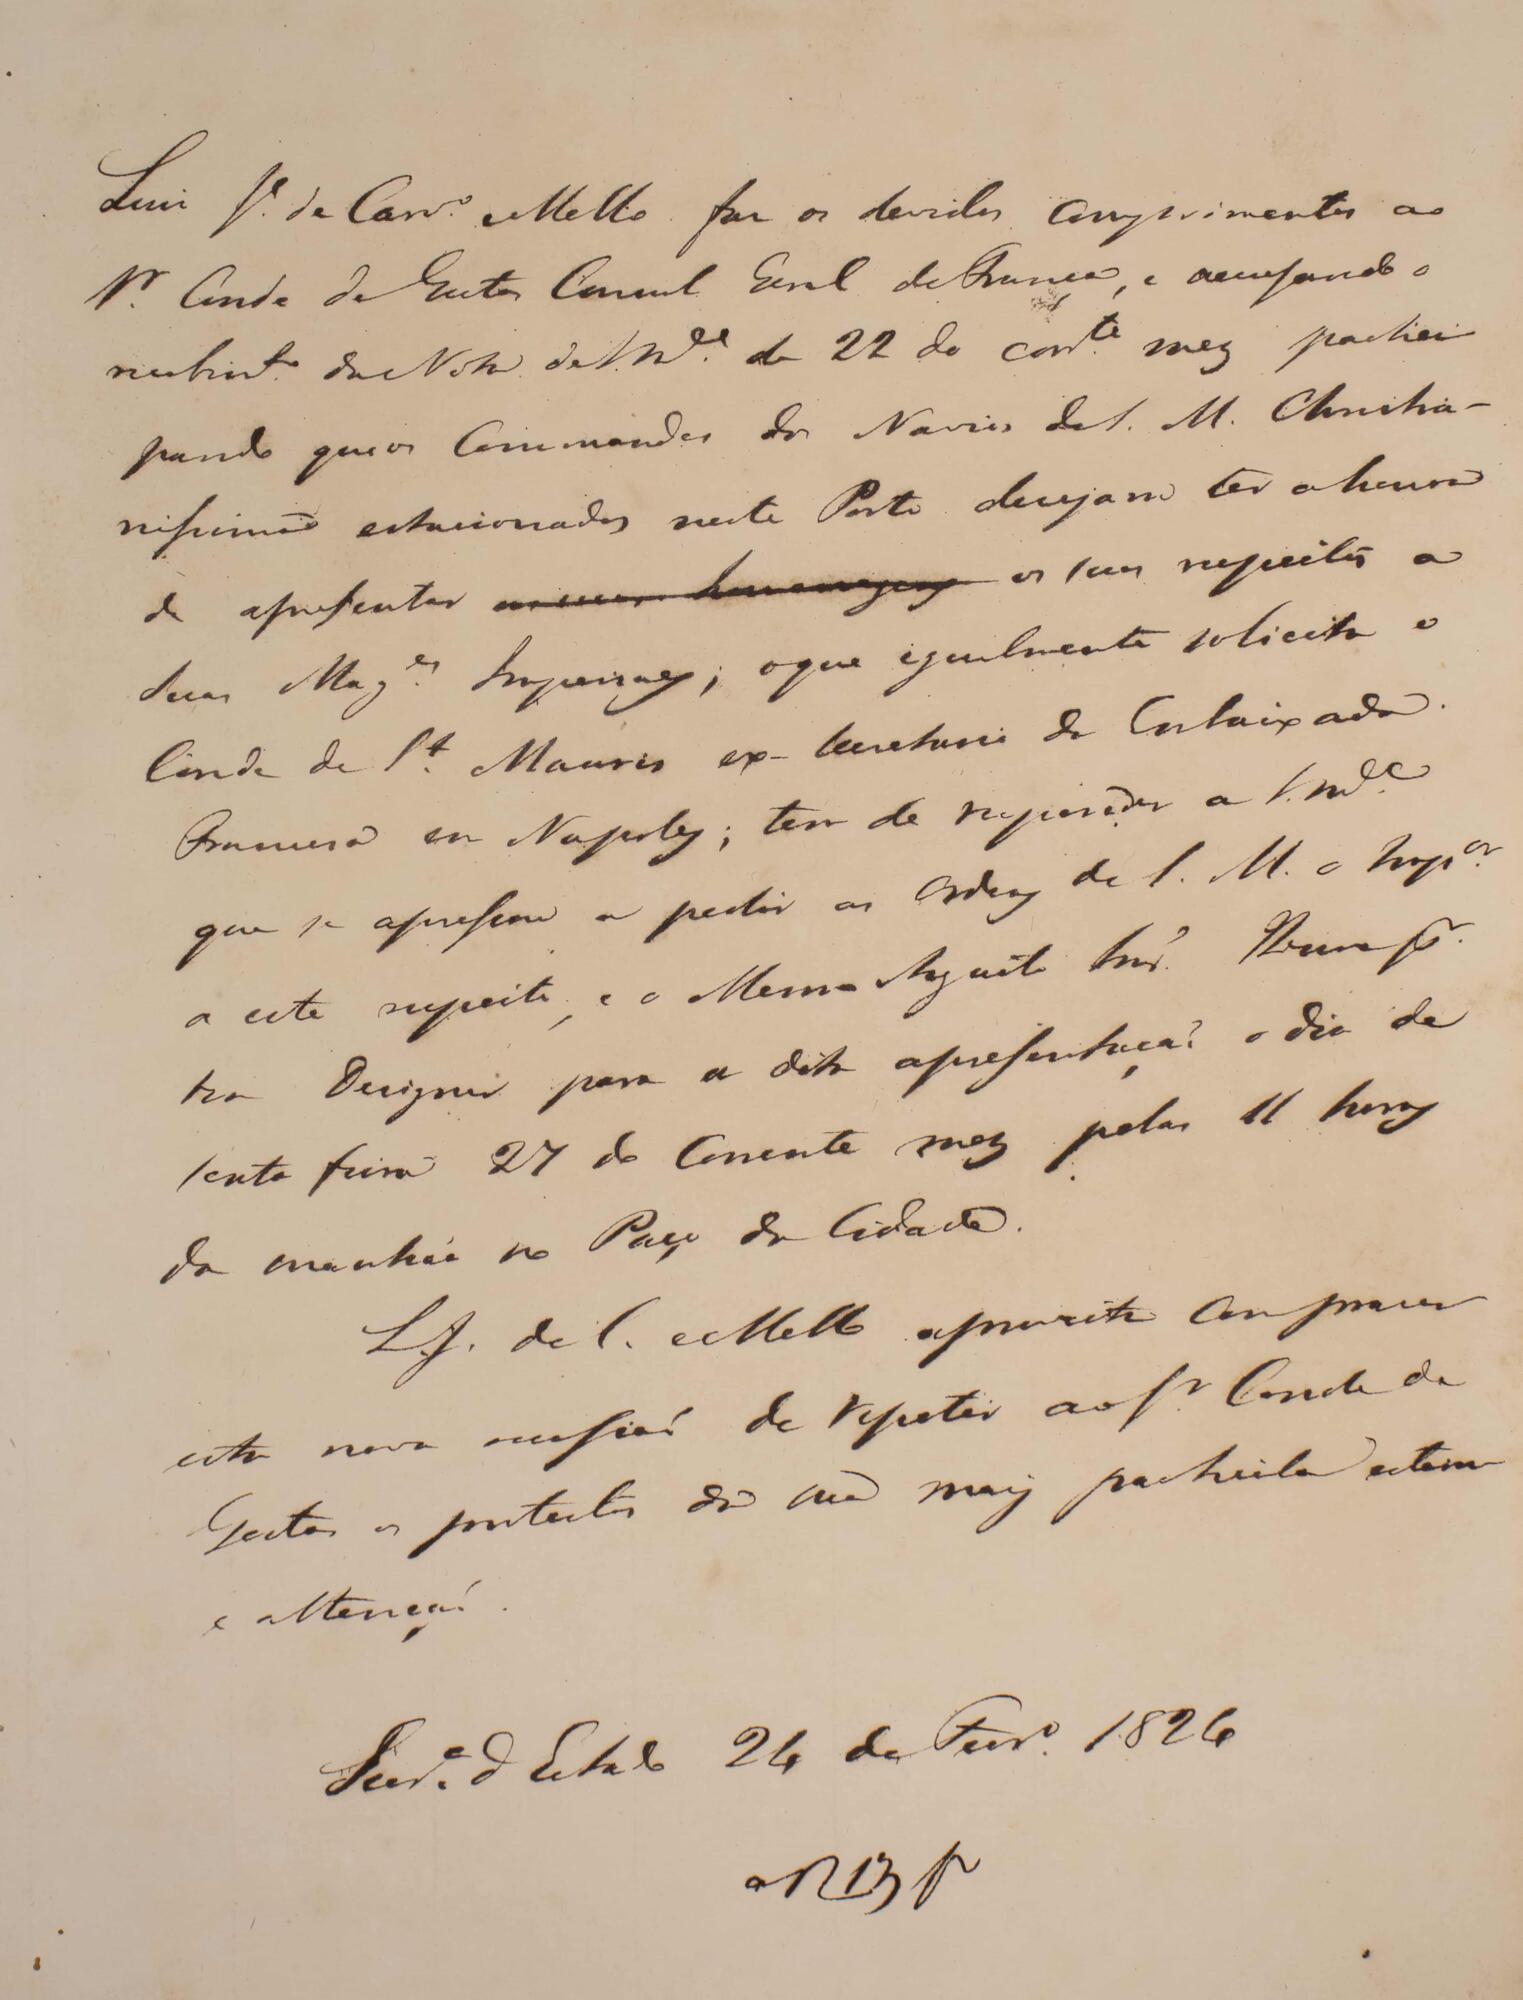 Luiz Jé. de Carvo. e Mello faz os devidos comprimentos ao
Sr. Conde de Gestas Consul Geral de França, e accusando o
recebimto. da Nota de S. Mce. de 22 do corrte. mez partici
pando que os Commandes dos Navios de S. M. Christia-
nissima estacionados neste Porto desejam ter a honra
de apresentar as suas homenagens os seus respeitos a
Suas Mages. Imperiaes; o que igualmente solicita o
Conde de St. Mauris ex-Secretario da Embaixada
Franceza em Napoles; tem de responder a S. Mce.
que se apressou a pedir as Ordens de S. M. o Impor.
a este respeito, e o Mesmo Augusto Snr. Houve por
bem Designar para a dita apresentação o dia de
sexta feira 27 do Corrente mez pelas 11 horas
da manhãa no Paço da Cidade.
L. J. de C. e Mello aproveita com prazer
esta nova occasião de repetir ao Sr. Conde de
Gestas os protestos da sua mais particular estima
e attenção.
Secra. d'Estado 24 de Fevro. 1826